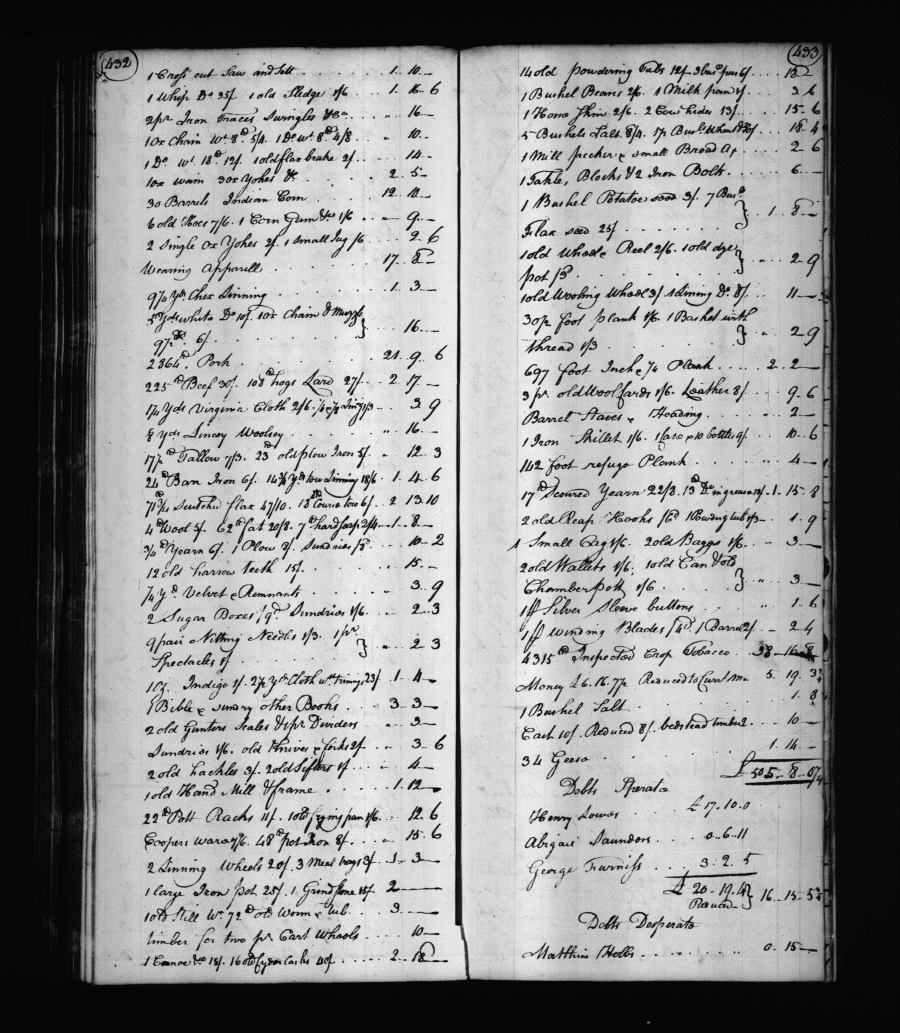 432
1 Cross cut Saw and Sett . . . . 1 . 10 —
1 Whip Do 35/. 1 old Sledge 1/6 . . 1 . 16 . 6
2 pr Iron Traces Swingles &Ca . . . „ 16 —
1 ox Chain Wt. 8d. 5/4. 1 Do wt. 8d 4/8 . . „ 10 —
1 Do wt. 18d. 12/. 1 old flax brake 2/. . . . 14 —
1 ox wain 3 ox Yokes &c . . . 2 . 5 —
30 Barrels Indian Corn . . . 12 . 10 —
6 old Hoes 7/6. 1 Corn Gum &c 1/6 . . . 9 —
2 Single ox Yokes 2/. 1 Small Jug /6 . . . 2 . 6
Wearing Apparell . . . . 17 . 8 —
9 3/4 yds. Chex Linning . . . . 1 . 3 —
5 Yds white Do 10/. 1 ox Chain & Muzzle
9 1/2 d. 6/. . . . } „ 16 —
2364 d. Pork . . . . 21 . 9 . 6
225 d Beef 30/. 108 d hogs Lard 27/. . . 2 . 17 —
1 1/4 Yds Virginia Cloth 2/6. Lining 1/3 . . 3 . 9
8 yds Lincey Woolsey . . . . „ 16 —
17 1/2 d Tallow 7/3. 23 d old plow Iron 5/. . „ 12 . 3
24 d Barr Iron 6/. 14 3/4 Yds tow Linning 18/6 . 1 . 4 . 6
71 d 3/4 Scutched flax 47/10. 18 d Course tow 6/. . 2 . 13 . 10
4 d Wool 5/. 62 d fat 20/8. 7 d hard soap 2/4 — 1 . 8 —
3/4 d Yearn 6/. 1 Plow 3/. Sundries /8 . . . 10 . 2
12 old harrow teeth 15/. . . . . 15 —
3/4 Yd Velvet & Remnants . . . . 3 . 9
2 Sugar Boxes /9d Sundries 1/6 . . . 2 . 3
9 pair Nitting Needles 1/3. 1 pr
Spectacles 1/ . . . . } „ 2 . 3
1 oz. Indigo 1/. 2 1/2 yds Cloth wth triming 23/ 1 . 4 —
1 Bible & sundry other Books . . . 3 . 3 —
2 old Gunters Scales & 1 pr Dividers . . „ 3 —
Sundries 1/6. old Knives & forks 2/. . . „ 3 . 6
2 old hackles 3/. 2 old Sifters 1/ . . . „ 4 —
1 old Hand Mill & frame . . . . 1 . 12 —
22 d Pott Racks 11/. 1 old frying pan 1/6 . . 12 . 6
Coopers ware 7/6. 48 d pot Iron 8/. . . „ 15 . 6
2 Linning Wheels 20/. 3 Meal trays 3/. . 1 . 3 —
1 large Iron pot 25/. 1 Grind stone 15/. 2 —
1 old Still Wt. 72 d old Worm & tub . . 3 . —
timber for two pr Cart Wheels . . . 10 —
1 Canoe &c 18/. 16 old Cyder Casks 40/. . . . 2 . 18 —
433
14 old powdering Tubs 12/. 3 6/. . . 18 —
1 Bushel Beans 2/6. 1 Milk pan 1/. . . 3 . 6
1 Horse Skin 2/6. 2 Cow hides 13/. . . 15 . 6
5 Bushels Salt 8/4. 17 Bush. . . 18 . 4
1 Mill pecker & small Broad Ax . . . 2 . 6
1 Takle, Blocks & 2 Iron Bolts . . . 6 —
1 Bushel Potatoe seed 3/. 7 Bushs
Flax seed 25/ . . . . } 1 . 8 —
1 old Wheel & Reel 2/6. 1 old dye
pot /3d . . . } „ 2 . 9
1 old Wooling Wheel 3/. 1 Lining Do. 8/. . . 11 —
30 foot plank 1/6. 1 Basket with
thread 1/3 . . . . } „ 2 . 9
697 foot Inch & 3/4 Plank . . . 2 . 2 —
3 pr. old Wool Cards 1/6. Leather 8/. . . 9 . 6
Barrel Staves & Heading . . . „ 2 —
1 Iron Skillet 1/6. 1 Case & 10 bottles 9/. . . 10 . 6
142 foot refuge Plank . . . . „ 4 —
17 d Scoured Yearn 22/8. 13 d Do. in grease 13/. . 1 . 15 . 8
2 old Reap Hooks /6d. 1 Powdering tub 1/3 — . 1 . 9
1 Small Keg 1/6. 2 old Baggs 1/6 . . „ 3 —
2 old Wallets 1/6. 1 old Can & old
Chamber Pott 1/6 } „ 3 —
1 pr Silver Sleeve buttons . . . „ 1 . 6
1 pr Winding Blades /4d. 1 Barrel 2/. . 2 . 4
4315 d Inspected Crop Tobacco . . 38 — 16 — 8
Money £6.16.7 1/2 Reduced to Currt. Mo. 5 . 19 . 3 1/4
1 Bushel Salt . . . . . 1 . 8
Cart 10/. Reduced 8/. bedstead timber 2 . . . 10 —
34 Geese . . . . 1 . 14 —
£ 505 — 8 — 0 1/4
Debts Sperate
Henry Lowes . . £17 . 10 . 0
Abigail Saunders . . . 0 . 6 . 11
George Furniss . . . 3 . 2 . 5
£ 20 . 19 . 4
Reduced } 16 — 15 — 5 1/2
Debts Desperate
Matthias Hobbs . . . . . . 0 . 15 —